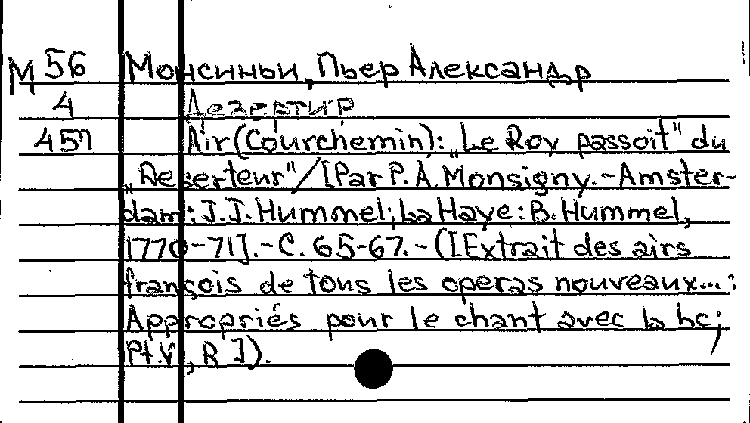 М 56 Монсиньи, Пьер Александр
4 Дезертир
457 Air (Courchemin): „Le Roy passoit" du
„Deserteur"/[Par P. A. Monsigny.-Amster-
dam: J.J. Hummel; La Haye: B. Hummel,
1770-71].-C. 65-67.-([Extrait des airs
françois de tous les operas nouveaux...:
Appropriés pour le chant avec la bc;
Pt.V, R ]).